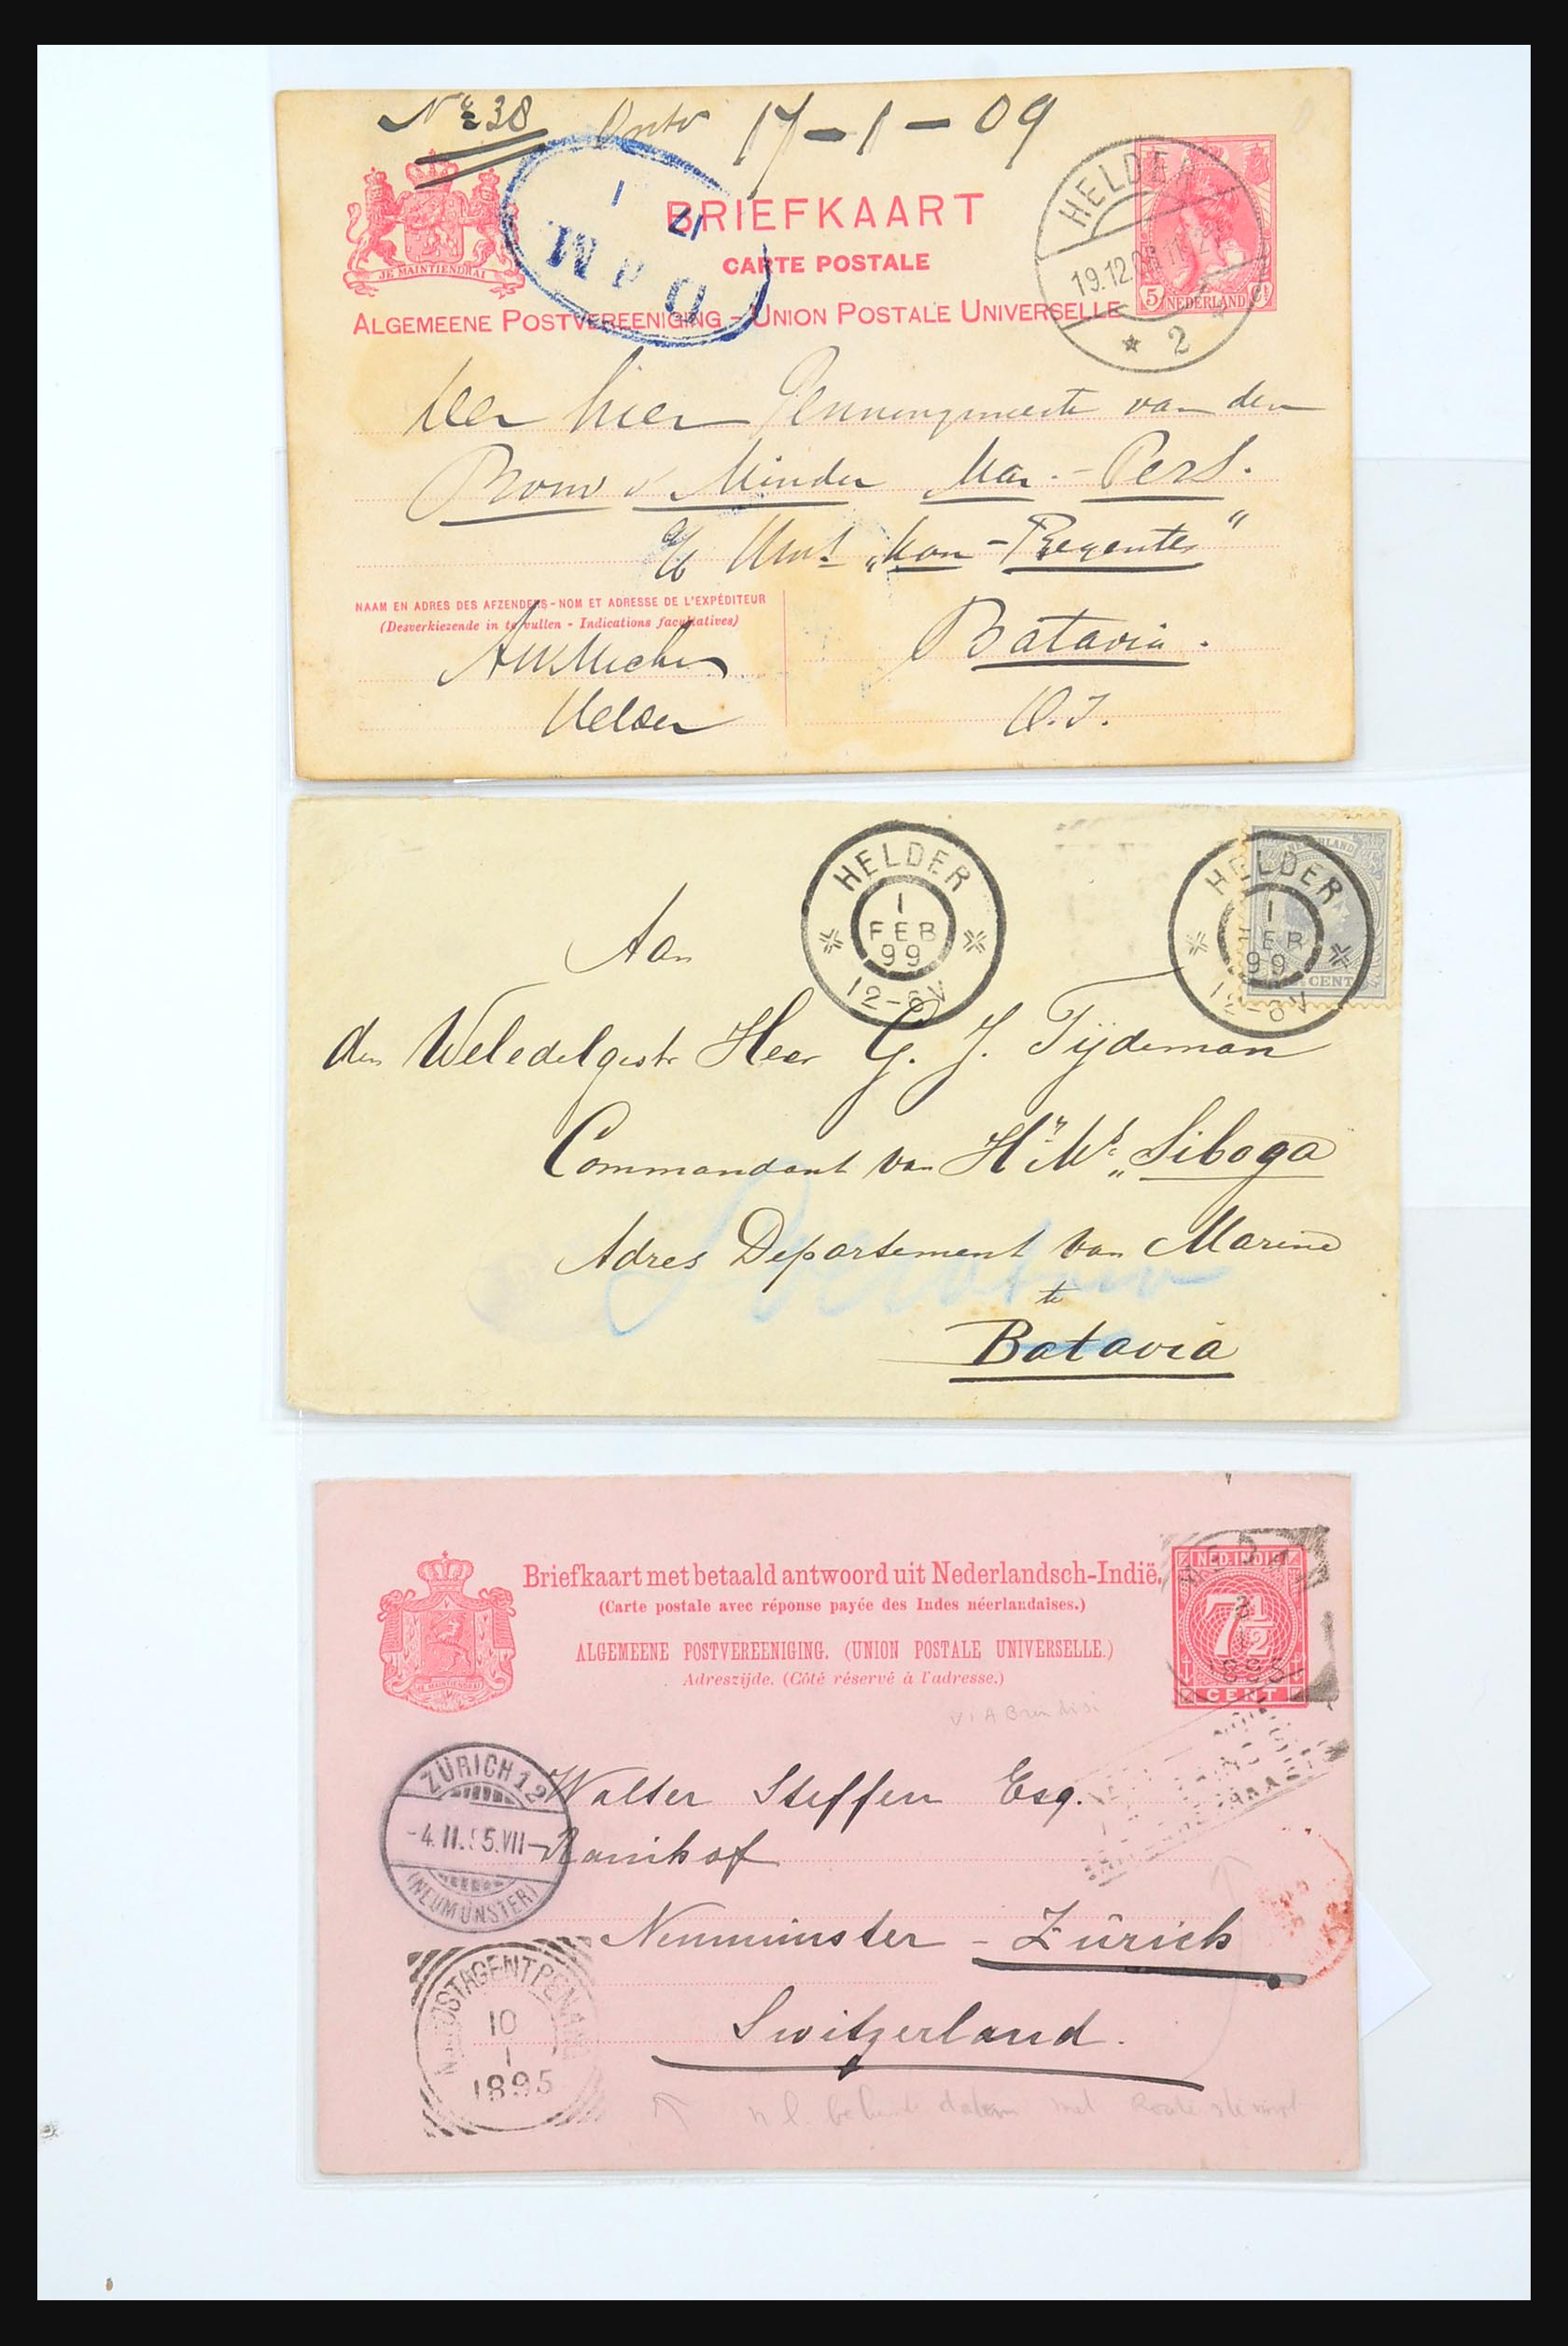 No 38 Ontv 17-1-09
JE MAINTIENDRAI
BRIEFKAART
CARTE POSTALE
ALGEMEENE POSTVEREENIGING - UNION POSTALE UNIVERSELLE
17
1
HELDER
19.12
2
5 NEDERLAND
Den heer Penningmeester van den
Bond v Minder Mar.- Pers.
a/b Hr Ms "Kon-Regentes"
NAAM EN ADRES DES AFZENDERS-NOM ET ADRESSE DE L'EXPÉDITEUR
(Desverkiezende in te vullen - Indications facultatives)
Batavia.
Helder
O.I.
HELDER
1
FEB
99
12-6V
HELDER
1
FEB
99
12-6V
NEDERLAND
CENT
Aan
den Weledelgestr Heer G. J. Tijdeman
Commandant van Hr Ms „Siboga
Adres Departement van Marine
te
Batavia
Briefkaart met betaald antwoord uit Nederlandsch-Indië.
(Carte postale avec réponse payée des Indes néerlandaises.)
ALGEMEENE POSTVEREENIGING. (UNION POSTALE UNIVERSELLE.)
Adreszijde. (Côté réservé à l'adresse.)
JE MAINTIENDRAI
NED. INDIE
7 1/2
CENT
1895
VIA Brindisi
ZÜRICH 12
-4.II.95.VII-
(NEUMÜNSTER)
Walter Steffen Esq.
Neumünster - Zürich
Switzerland.
N.I. POSTAGENT PENANG
10
1
1895